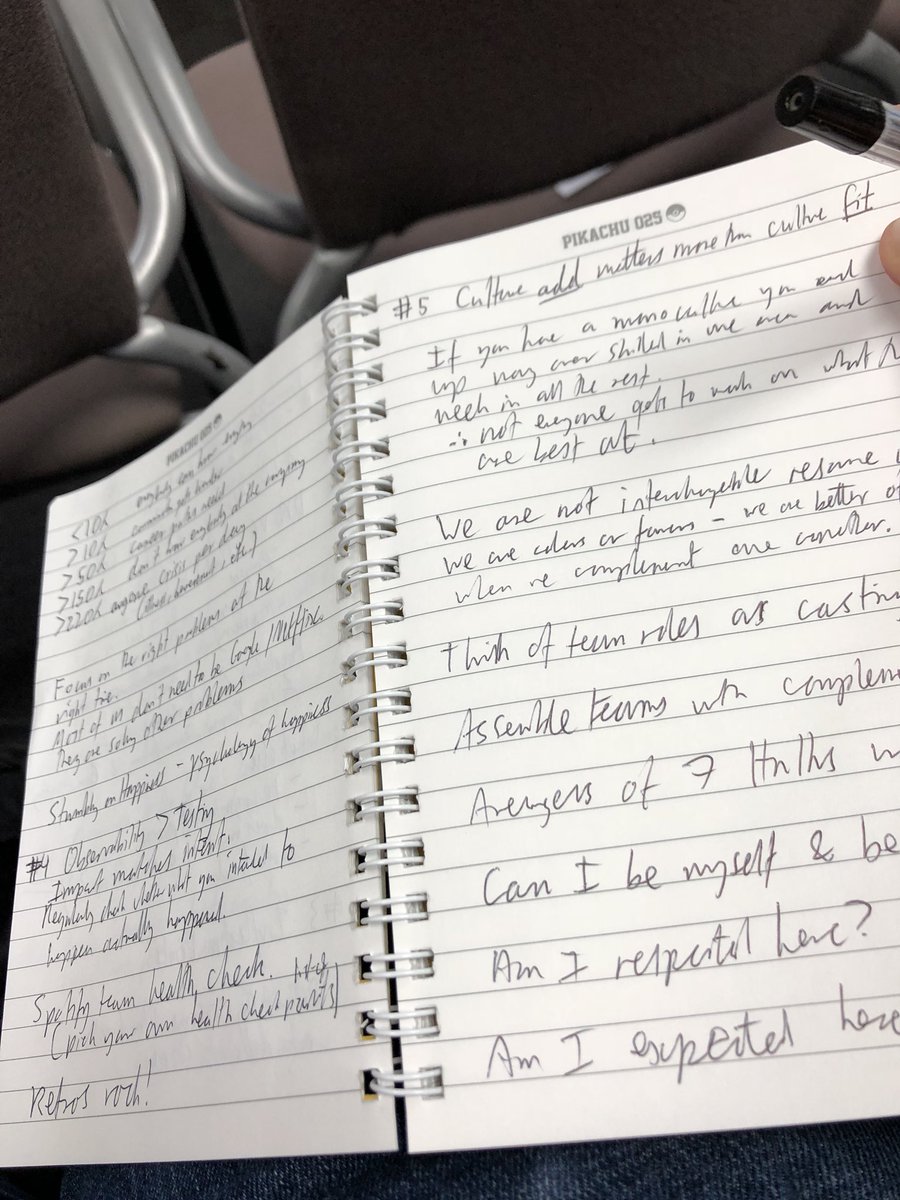 PIKACHU 025
<10d everybody can know everything
>10d
>50d
>150d don't know everybody at the company
>220d crisis per day
Focus on the right problems at the
right time.
Most of us don't need to be Google/Netflix.
They are solving other problems
Stumbling on Happiness - psychology of happiness
#4 Observability > Testing
Impact matches intent.
Regularly check whether what you intended to
happen actually happened.
Spotify team health check.
(pick your own health check
Retros rock!
PIKACHU 025
#5 Culture add matters more than culture fit
If you have a monoculture you end
up way over skilled in one area and
weak in all the rest.
∴ not everyone gets to work on what
are best at.
We are not interchangeable resume
we are or - we are better
when we complement one another.
Think of team roles as
Assemble teams with
Avengers of 7 Hulks
Can I be myself & be
Am I respected here?
Am I expected here